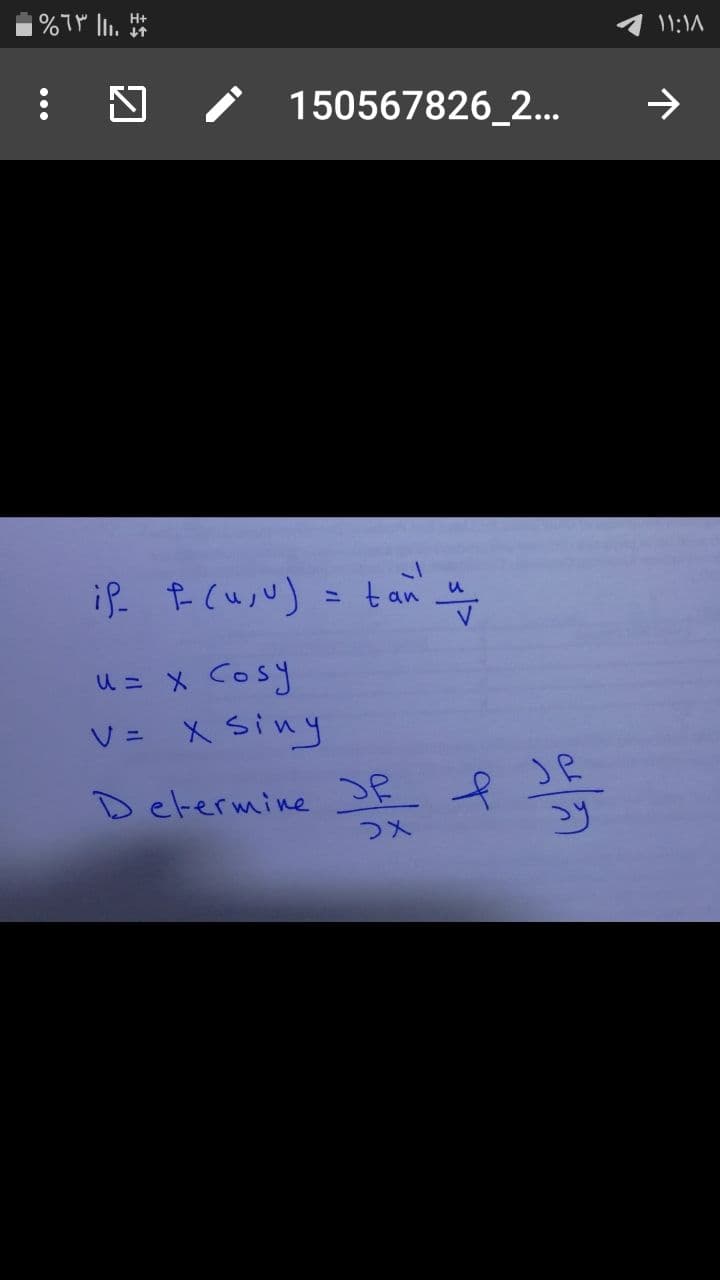 %٦٣ H+ ١١:١٨
150567826_2...
if f(u,v) = tan⁻¹ u/v
u = x Cosy
v = x siny
Determine ∂f/∂x & ∂f/∂y